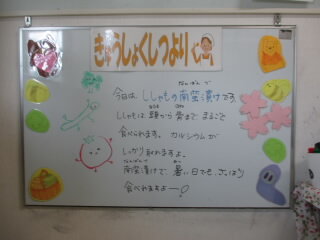 きゅうしょくしつより
なんばんづ
今日は、ししゃもの南蛮漬けです。
あたま ほね
ししゃもは、頭から骨まで まるごと
食べられます。カルシウムが
しっかり取れますよ。
なんばんづ あつ
南蛮漬けで、暑い日でも、さっぱり
食べれますよー!